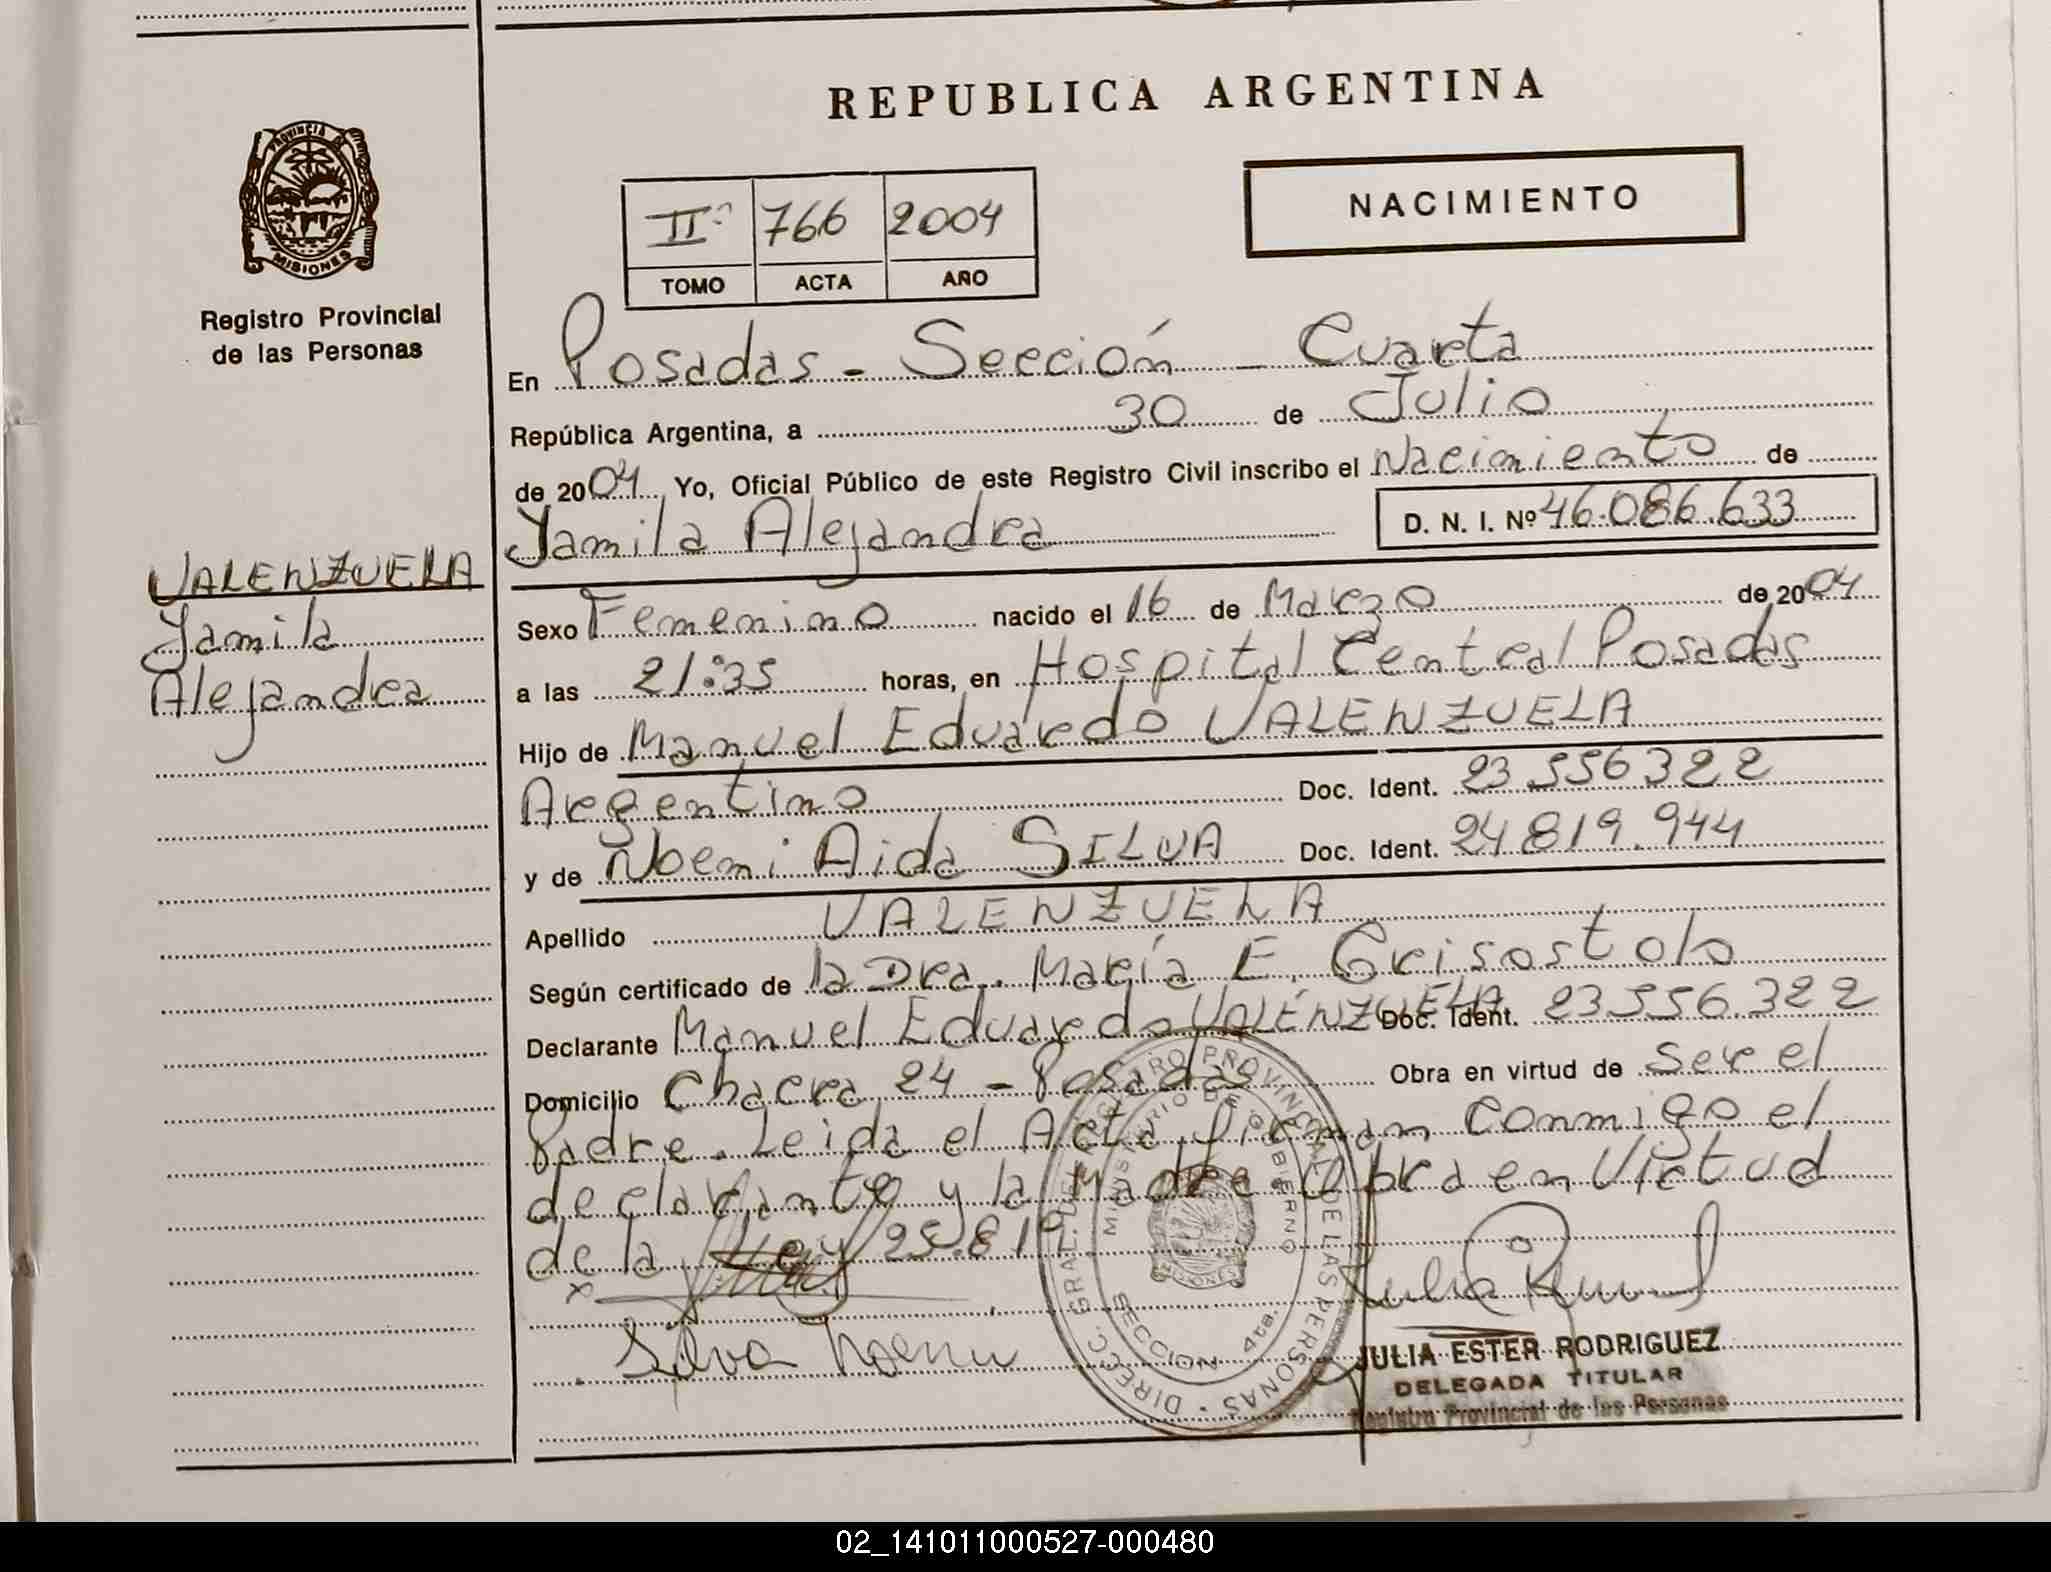 REPUBLICA ARGENTINA
PROVINCIA DE
MISIONES
Registro Provincial
de las Personas
IIº 766 2004
TOMO ACTA AÑO
NACIMIENTO
En Posadas - Sección - Cuarta
República Argentina, a 30 de Julio
de 2004 Yo, Oficial Público de este Registro Civil inscribo el Nacimiento de
Yamila Alejandra D. N. I. Nº 46.086.633
VALENZUELA
Yamila
Alejandra
Sexo Femenino nacido el 16 de Marzo de 2004
a las 21:35 horas, en Hospital Central Posadas
Hijo de Manuel Eduardo VALENZUELA
Argentino Doc. Ident. 23.556322
y de Noemi Aida SILVA Doc. Ident. 24819.944
Apellido VALENZUELA
Según certificado de la Dra. María E. Grisostolo
Declarante Manuel Eduardo VALENZUELA Doc. Ident. 23556.322
Domicilio Chacra 24 - Posadas Obra en virtud de ser el
Padre. Leida el Acta, firman conmigo el
declarante y la Madre. Obra en Virtud
de la Ley 25.819
x
Silva Noemi
DIREC. GRAL. DEL REGISTRO PROVINCIAL DE LAS PERSONAS
MINISTERIO DE GOBIERNO
MISIONES
SECCION 4ta.
JULIA ESTER RODRIGUEZ
DELEGADA TITULAR
Registro Provincial de las Personas
02_141011000527-000480